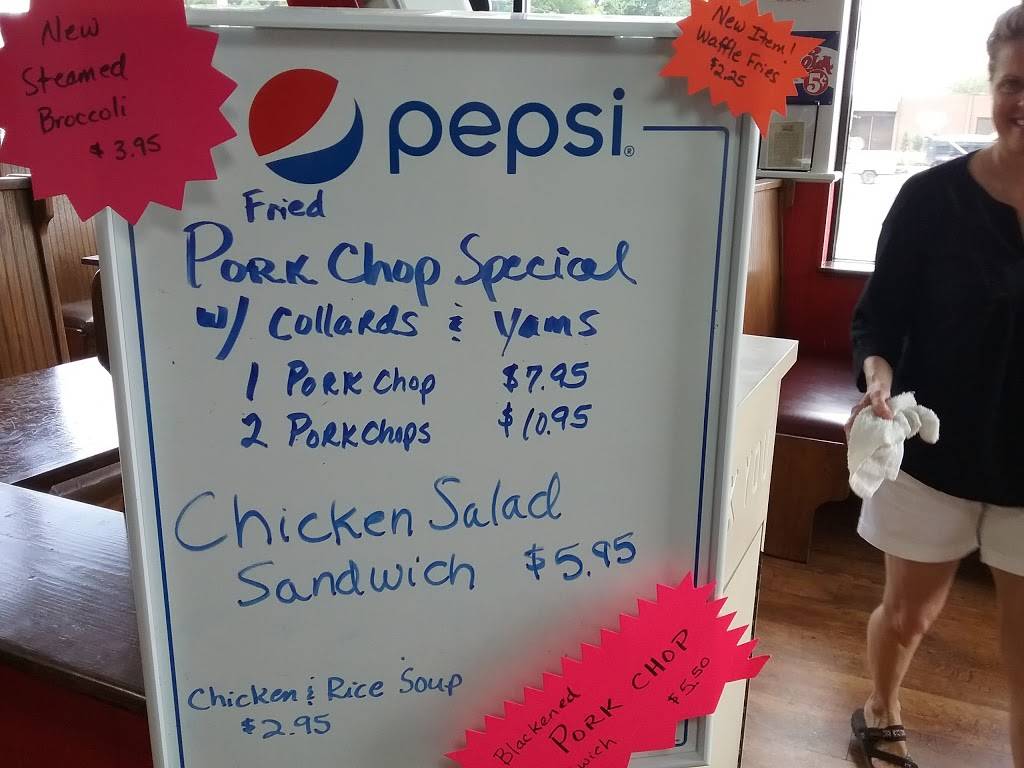 New
Steamed
Broccoli
$3.95
New Item!
Waffle Fries
$2.25
5¢
pepsi
Fried
Pork Chop Special
w/ Collards & Yams
1 Pork Chop $7.95
2 Pork Chops $10.95
Chicken Salad
Sandwich $5.95
Chicken & Rice Soup
$2.95
Blackened
PORK CHOP
wich $5.50